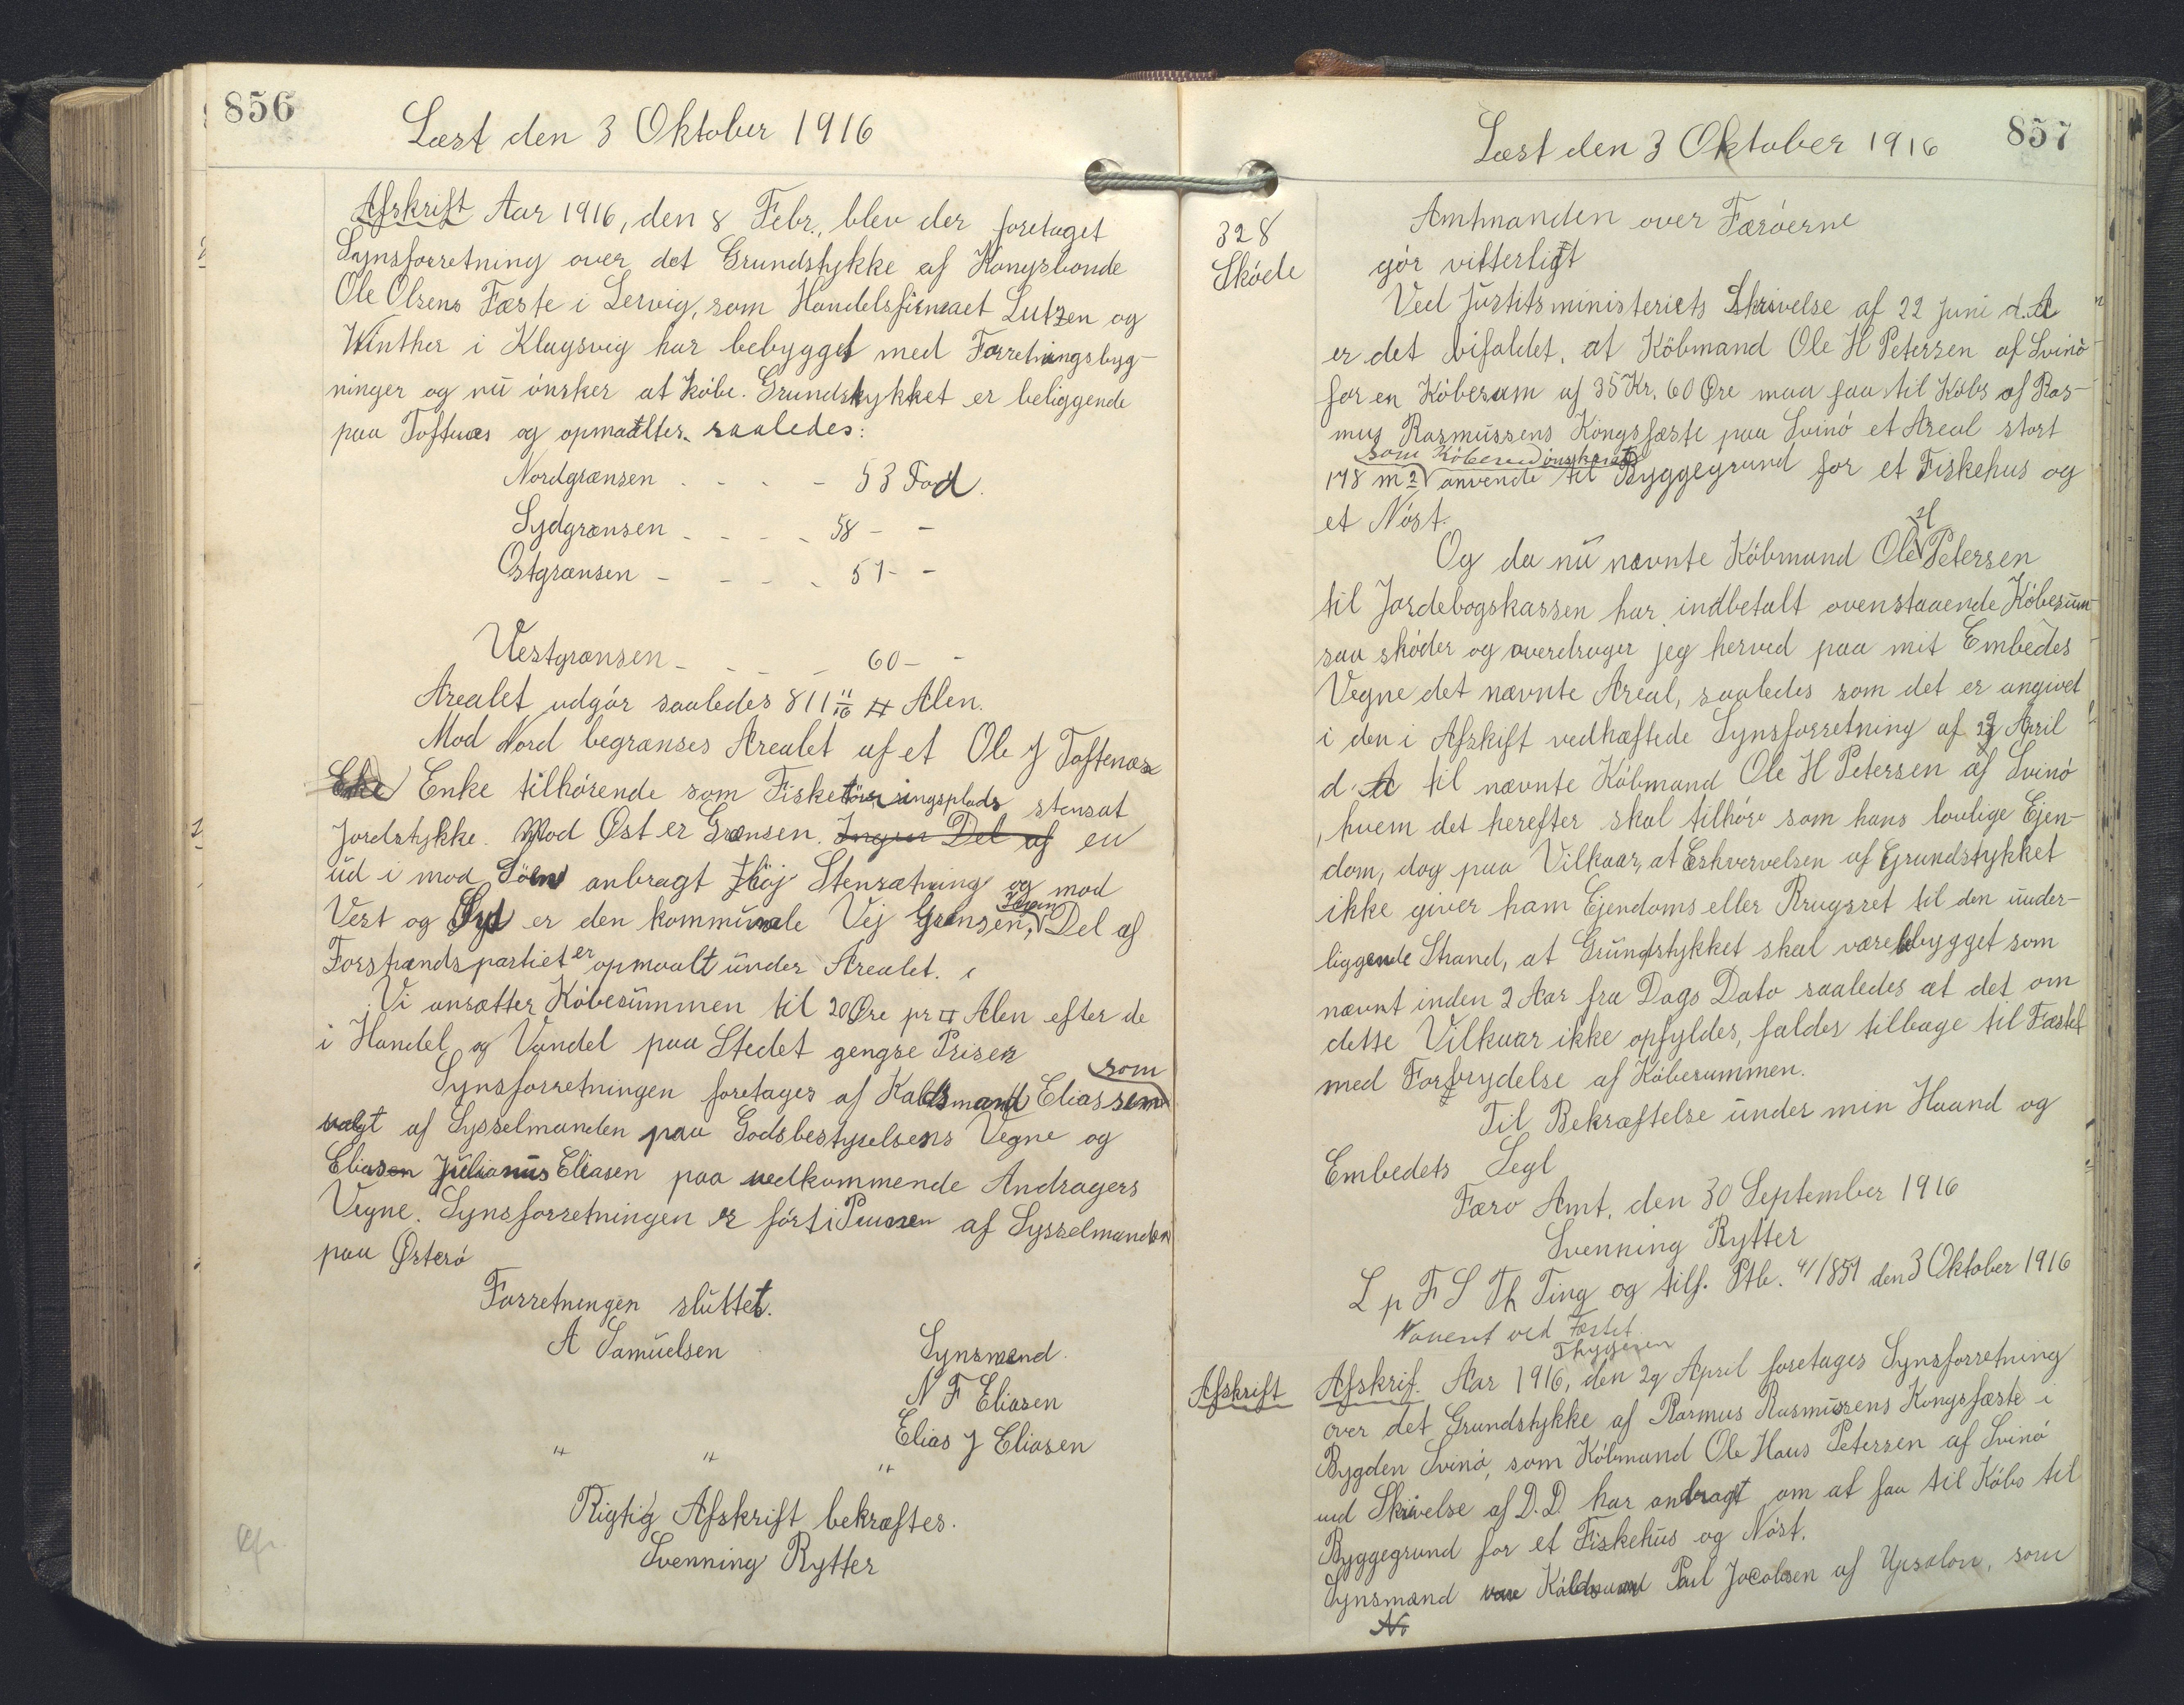 856
Læst den 3 Oktober 1916
Afskrift Aar 1916, den 8 Febr., blev der foretaget
Synsforretning over det Grundstykke af Kongsbonde
Ole Olsens Fæste i Lervig, som Handelsfirmaet Lutzen og
Winther i Klagsvig har bebygget med Forretningsbyg-
ninger og nu ønsker at købe. Grundstykket er beliggende
paa Toftnæs og opmaaltes saaledes:
Nordgrænsen - - - - 53 Fod.
Sydgrænsen - - - - 58 - -
Østgrænsen - - - - 51 - -
Vestgrænsen - - - - 60 - -
Arealet udgør saaledes 811 11/16 □ Alen.
Mod Nord begrænses Arealet af et Ole J Toftenæs
Enke tilhørende som Fisketørringsplads stensat
Jordstykke. Mod Øst er Grænsen. Ingen Del af en
ud i mod Søen anbragt høj Stensætning og mod
Vest og Syd er den kommunale Vej Grænsen, Ingen Del af
Forstrandspartiet er opmaalt under Arealet.
Vi ansætter Købesummen til 20 Øre pr □ Alen efter de
i Handel og Vandel paa Stedet gengse Priser
Synsforretningen foretages af Kaldsmand Eliassen som
valgt af Sysselmanden paa Godsbestyrelsens Vegne og
Eliasen Julianus Eliasen paa vedkommende Andragers
Vegne. Synsforretningen er ført i Pennen af Sysselmanden
paa Østerø
Forretningen sluttet.
A Samuelsen Synsmænd.
N F Eliasen
Elias J Eliasen
" " "
Rigtig Afskrift bekræftes.
Svenning Rytter
857
Læst den 3 Oktober 1916
328
Skøde
Amtmanden over Færøerne
gør vitterligt
Ved Justitsministeriets Skrivelse af 22 Juni d. A
er det bifaldet, at Købmand Ole H Petersen af Svinø
for en Købesum af 35 Kr. 60 Øre maa faa til Købs af Ras-
mus Rasmussens Kongsfæste paa Svinø et Areal stort
178 m2 som Køberen ønsker at anvende til Byggegrund for et Fiskehus og
et Nøst.
Og da nu nævnte Købmand Ole H Petersen
til Jordebogskassen har indbetalt ovenstaaende Købesum
saa skøder og overdrager jeg herved paa mit Embedes
Vegne det nævnte Areal, saaledes som det er angivet
i den i Afskift vedhæftede Synsforretning af 29 April
d. A til nævnte Købmand Ole H Petersen af Svinø
, hvem det herefter skal tilhøre som hans lovlige Ejen-
dom, dog paa Vilkaar, at Erhvervelsen af Grundstykket
ikke giver ham Ejendoms eller Brugsret til den under-
liggende Strand, at Grundstykket skal være bebygget som
nævnt inden 2 Aar fra Dags Dato saaledes at det om
dette Vilkaar ikke opfyldes, falder tilbage til Fæstet
med Forbrydelse af Købesummen.
Til Bekræftelse under min Haand og
Embedets Segl
Færø Amt, den 30 September 1916
Svenning Rytter
L p F S Th Ting og tilf. Ptb. den 3 Oktober 1916
Noteret ved Fæstet
Thygesen
Afskrift
Afskrif. Aar 1916, den 29 April foretages Synsforretning
over det Grundstykke af Rasmus Rasmussens Kongsfæste i
Bygden Svinø, som Købmand Ole Hans Petersen af Svinø
ved Skrivelse af D. D. har andragt om at faa til Købs til
Byggegrund for et Fiskehus og Nøst.
Synsmænd vare Kaldsmand Poul Jocobsen af Ypsalon, som